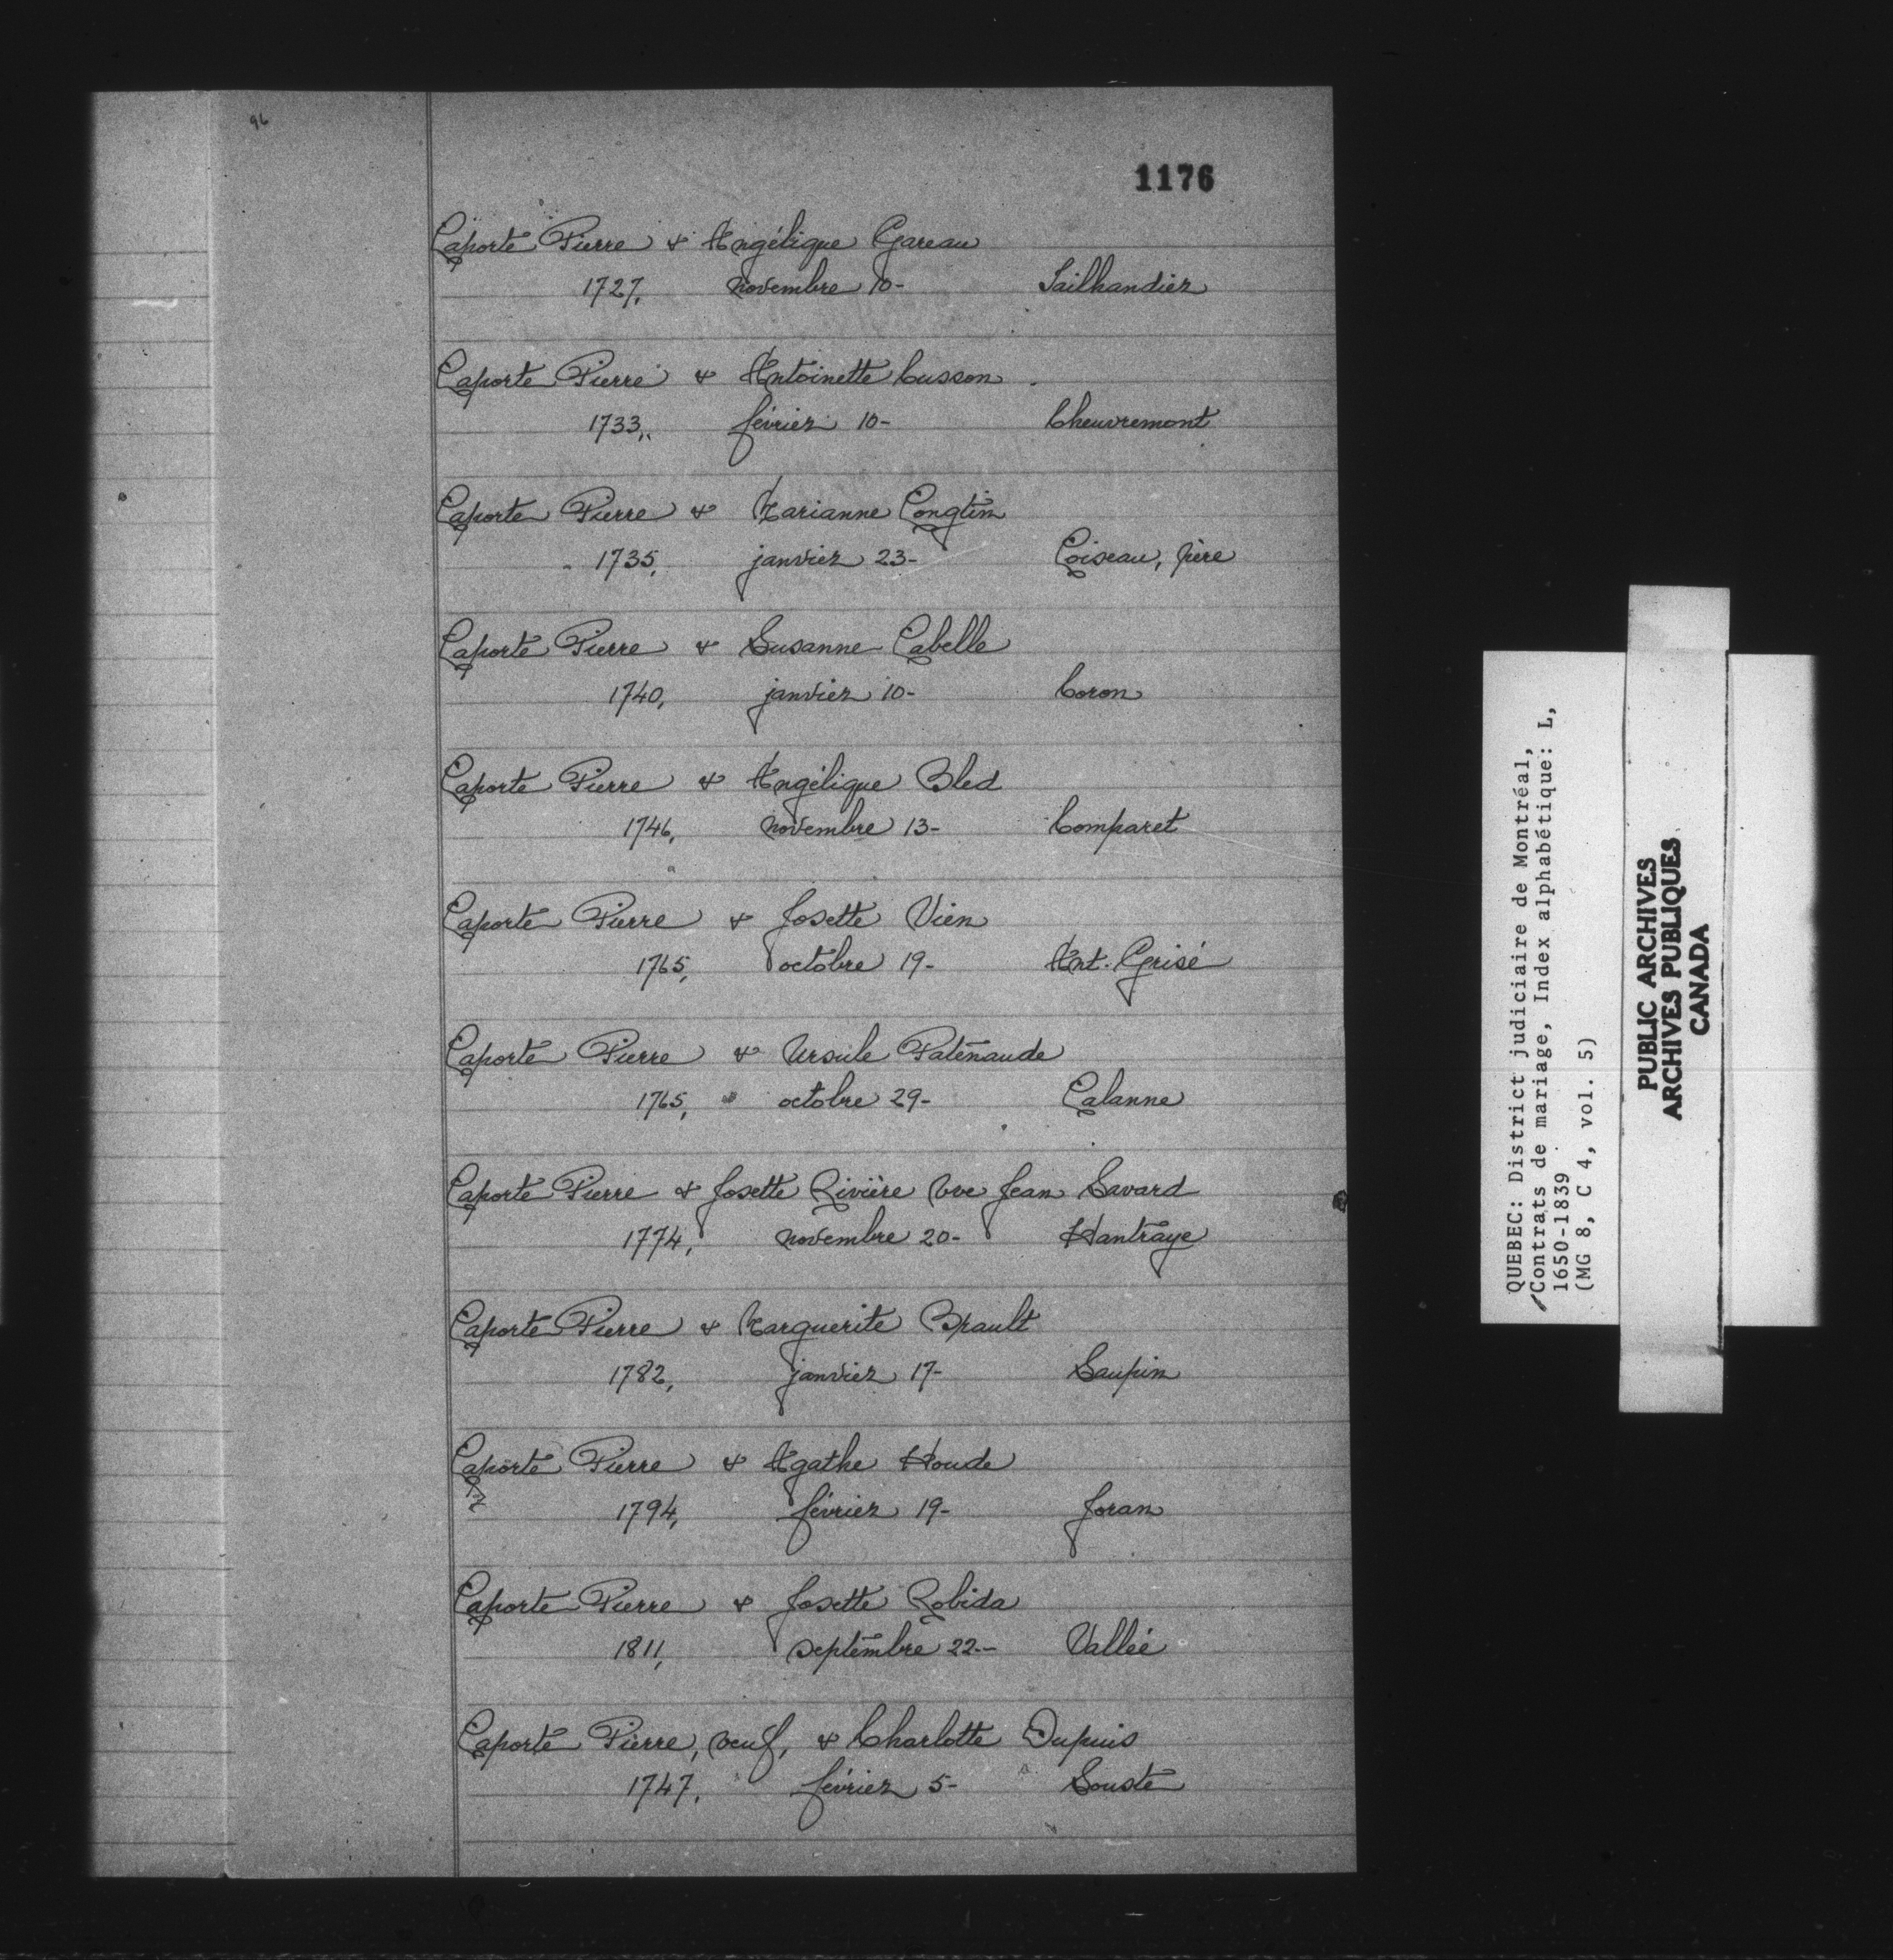 96
1176
Laporte Pierre & Angélique Gareau
1727, novembre 10- Tailhandier
Laporte Pierre & Antoinette Cusson
1733, février 10- Cheuvremont
Laporte Pierre & Marianne Longtin
1735, janvier 23- Loiseau, père
Laporte Pierre & Susanne Labelle
1740, janvier 10- Coron
Laporte Pierre & Angélique Bled
1746, novembre 13- Comparet
Laporte Pierre & Josette Vien
1765, octobre 19- Ant. Grisé
Laporte Pierre & Ursule Patenaude
1765, octobre 29- Lalanne
Laporte Pierre & Josette Rivière Vve Jean Savard
1774, novembre 20- Hantraye
Laporte Pierre & Marguerite Brault
1782, janvier 17- Saupin
Laporte Pierre & Agathe Houde
1794, février 19- Joran
Laporte Pierre & Josette Robida
1811, septembre 22-- Vallée
Laporte Pierre, veuf, & Charlotte Dupuis
1747, février 5- Souste
QUEBEC: District judiciaire de Montréal,
Contrats de mariage, Index alphabétique: L,
1650-1839
(MG 8, C 4, vol. 5)
PUBLIC ARCHIVES
ARCHIVES PUBLIQUES
CANADA